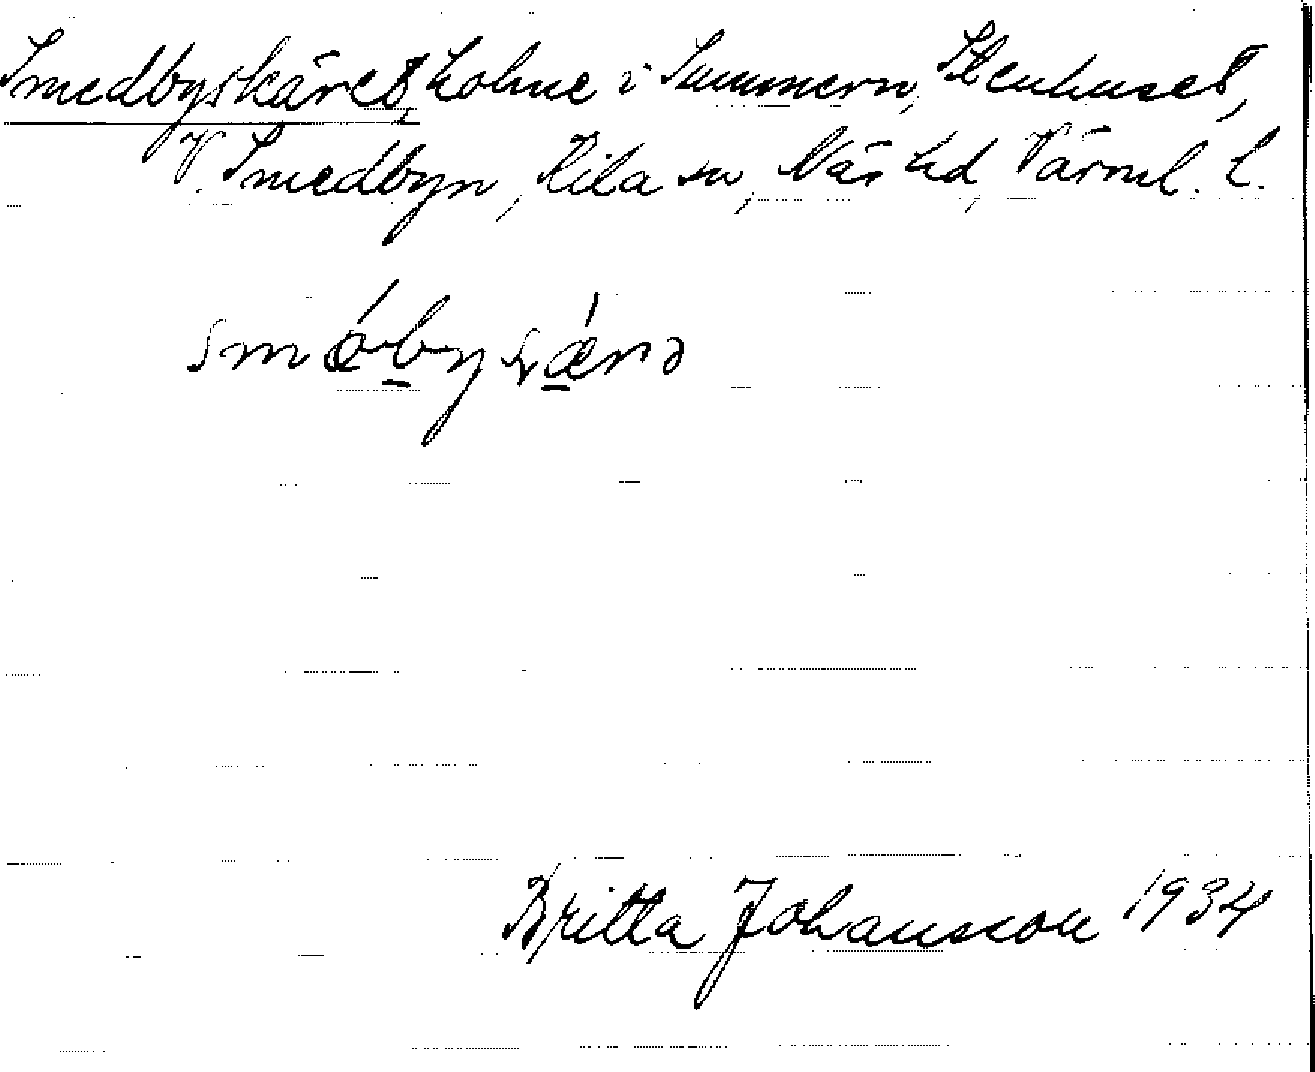 Smedbyskäret, holme i Summern, Stenhuset,
V. Smedbyn, Kila sn, Näs hd, Värml. l.
Britta Johansson 1934